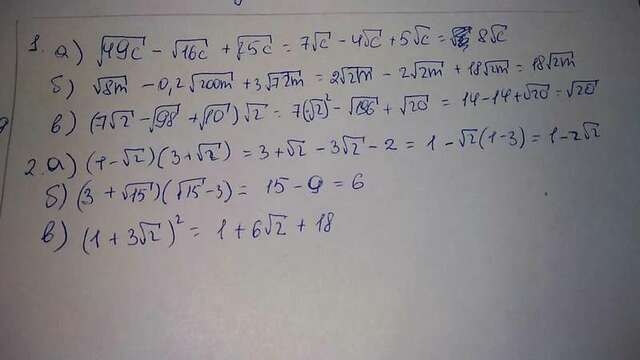 1. а) √49c - √16c + √25c = 7√c - 4√c + 5√c = 8√c
б) √8m - 0,2√200m + 3√72m = 2√2m - 2√2m + 18√2m = 18√2m
в) (7√2 - √98 + √10)√2 = 7(√2)² - √196 + √20 = 14-14+√20 = √20
2. а) (1-√2)(3+√2) = 3+√2 - 3√2 - 2 = 1 - √2(1-3) = 1-2√2
б) (3 + √15)(√15-3) = 15 - 9 = 6
в) (1 + 3√2)² = 1 + 6√2 + 18